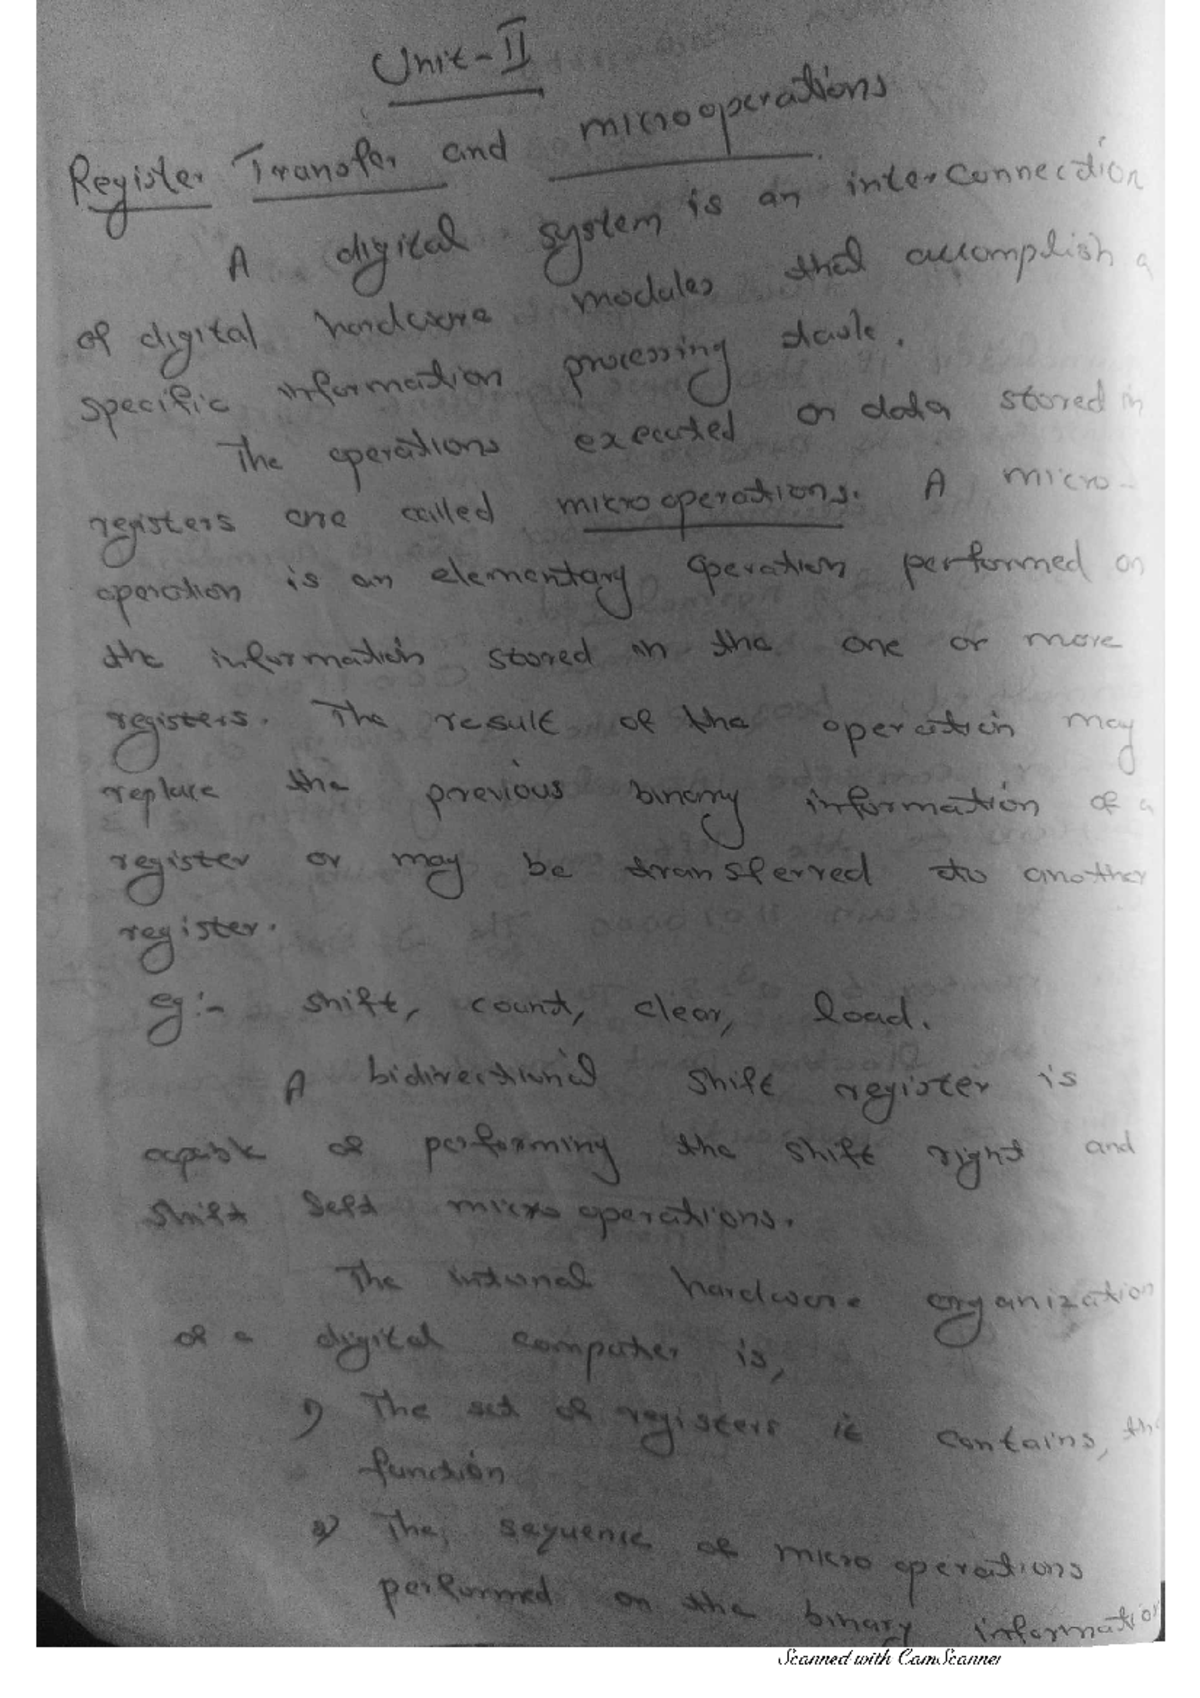 Unit-II
Register Transfer and microoperations
A digital system is an interconnection
of digital hardware modules that accomplish a
specific information processing
The operations executed on data stored in
registers are called microoperations. A micro-
operation is an elementary operation performed on
the information stored in the one or more
registers. The result of the operation may
replace the previous binary information of a
register or may be transferred to another
register.
eg:- shift, count, clear, load.
A bidirectional shift register is
capable of performing the shift right and
shift left micro operations.
The internal hardware organization
of a digital computer is,
1) The set of registers it contains, the
function
2) The sequence of micro operations
performed on the binary information
Scanned with CamScanner